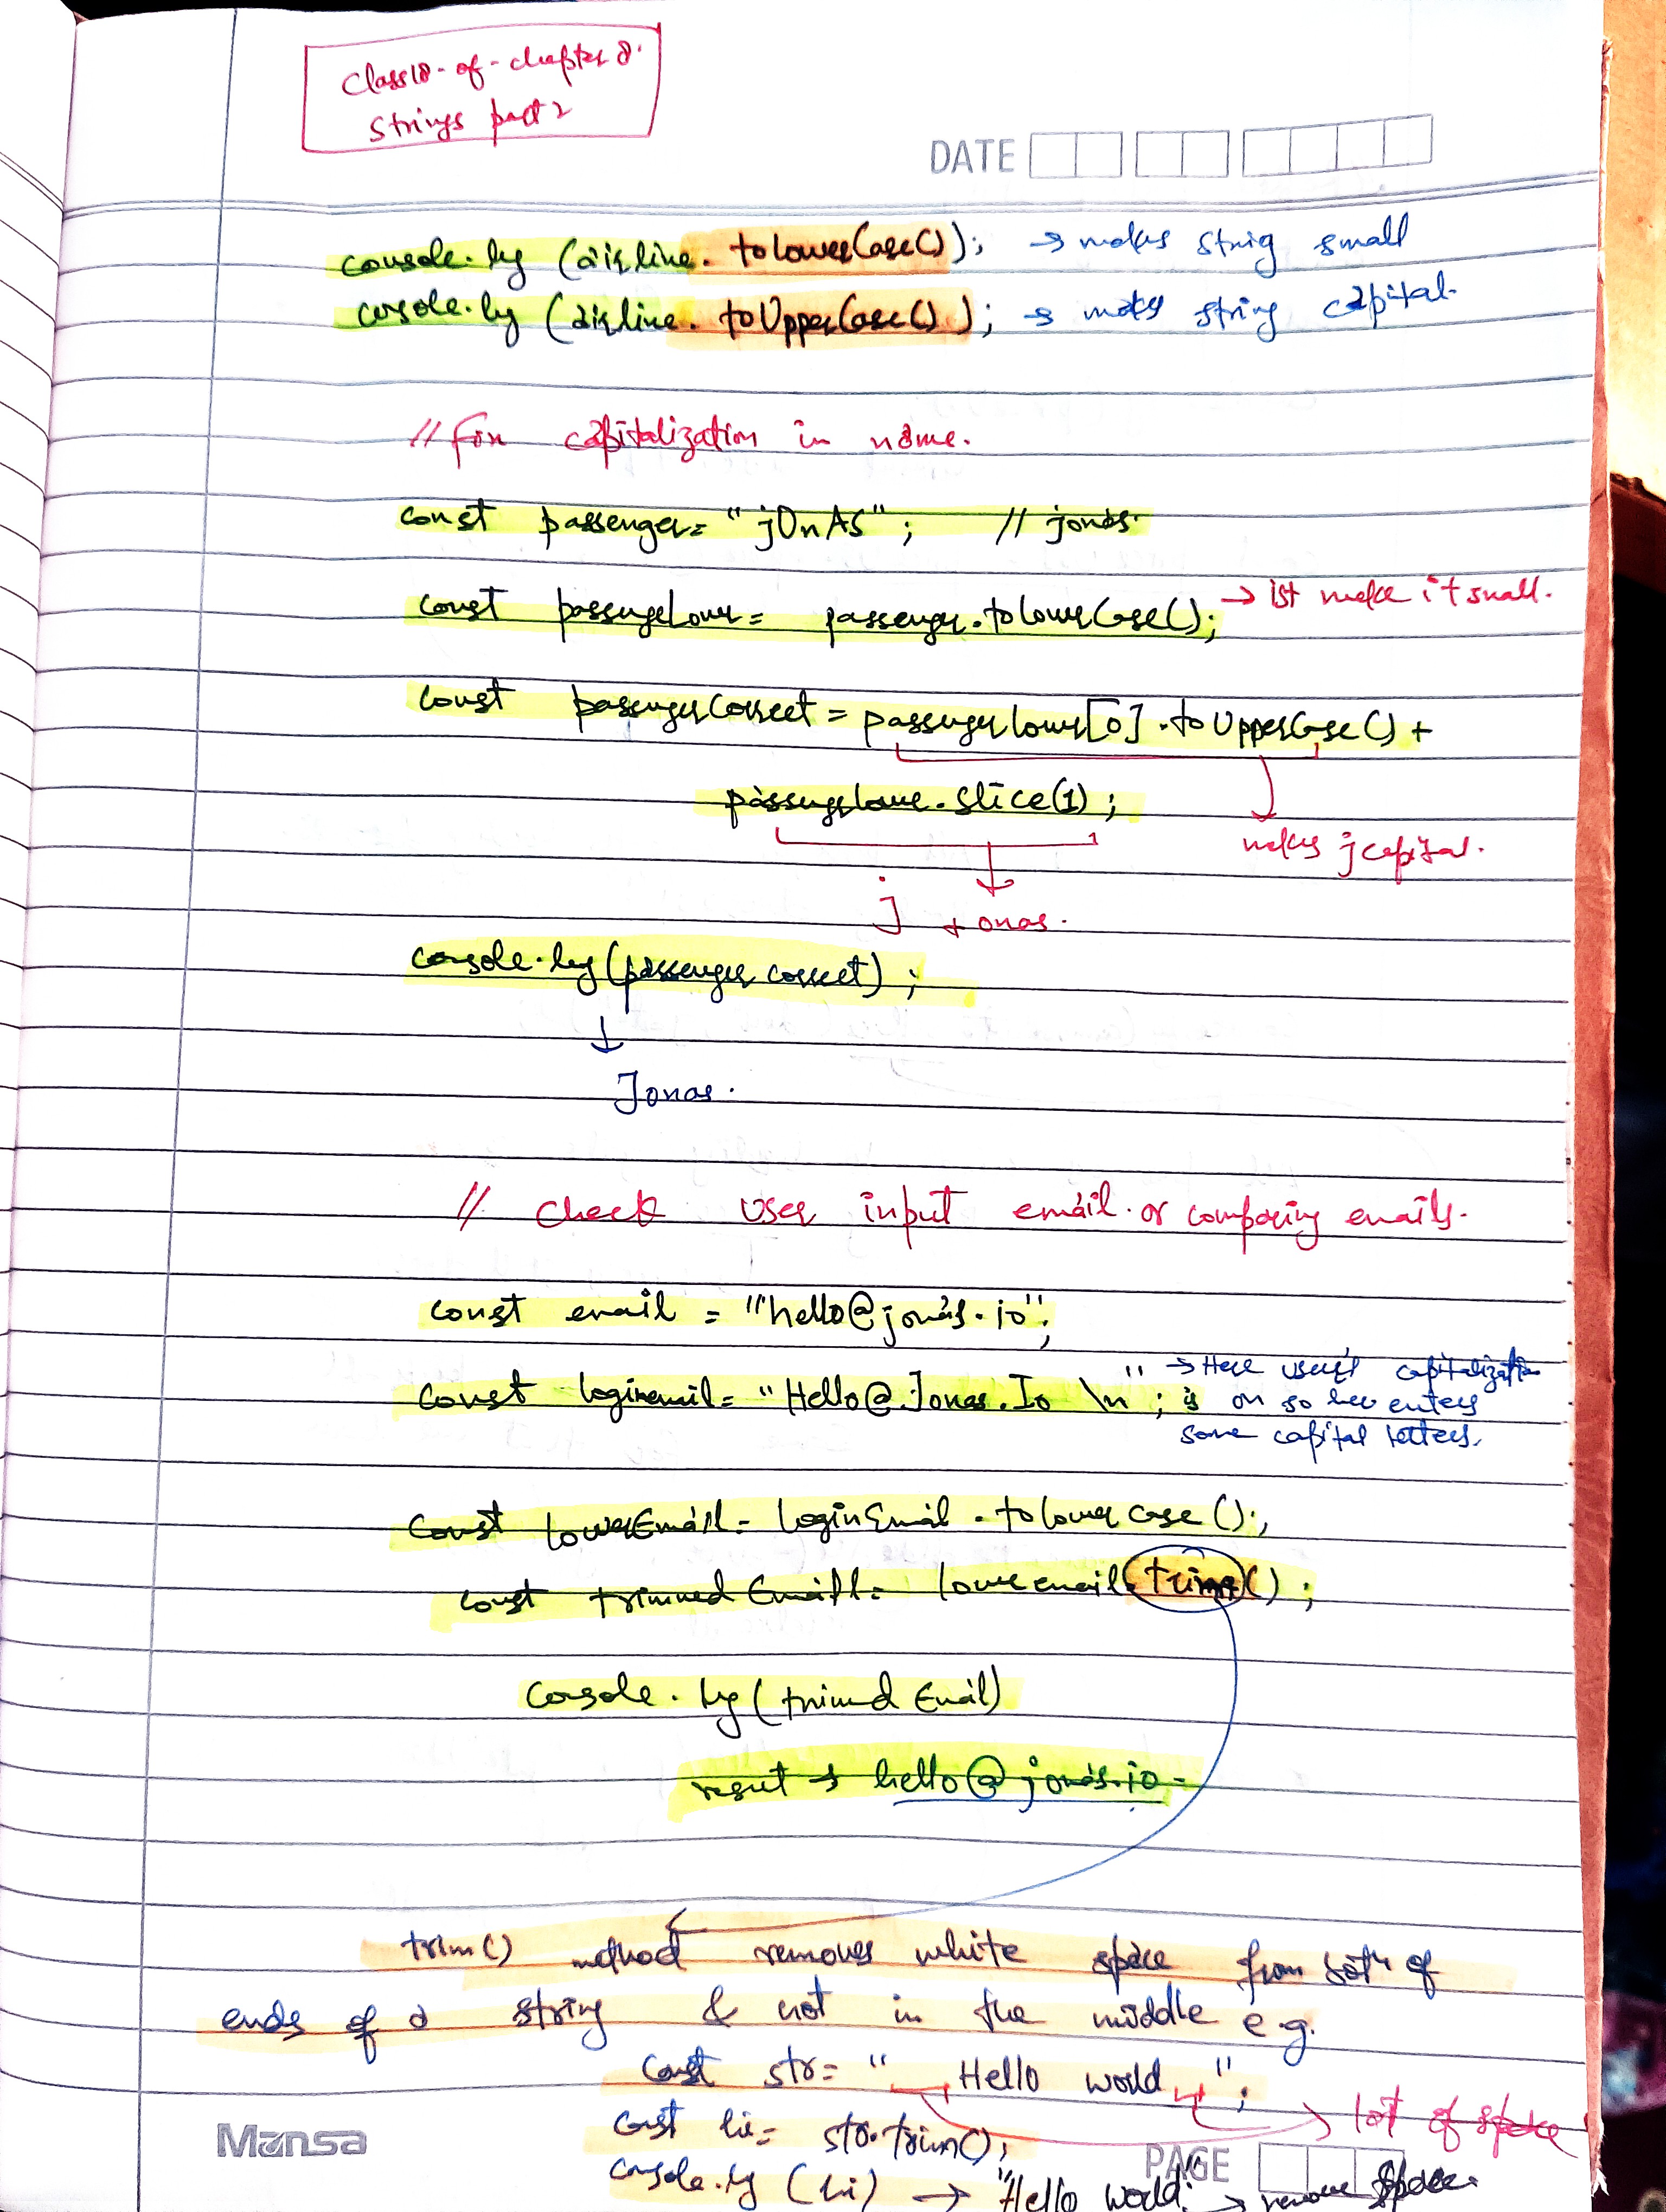 Class 18-of-chapter 8.
Strings part 2
DATE
console.log (airline.toLowerCase()); → makes string small
console.log (airline.toUpperCase()); → makes string capital.
// fix capitalization in name.
const passenger= "jOnAS"; // jonas.
const passengeLower= passenger.toLowerCase(); → 1st make it small.
const passengerCorrect = passengerlower[0].toUpperCase() +
passengelower.slice(1);
makes j capital.
j + onas.
console.log(passenger correct);
↓
Jonas.
// Check user input email or comparing emails.
const email = "hello@jonas.io";
const loginemail= "Hello@Jonas.Io \n"; → Here user's capitalization
is on so he enters
some capital letters.
const lowerEmail= loginEmail.tolowercase();
const trimmedEmail= loweremail.trim();
console.log(trimmed Email)
result → hello@jonas.io
trim() method removes white space from both of
ends of a string & not in the middle e.g.
const str= " Hello world ";
→ lot of space
const hi= str.trim();
console.log (hi) → "Hello world" → remove space.
Mansa
PAGE